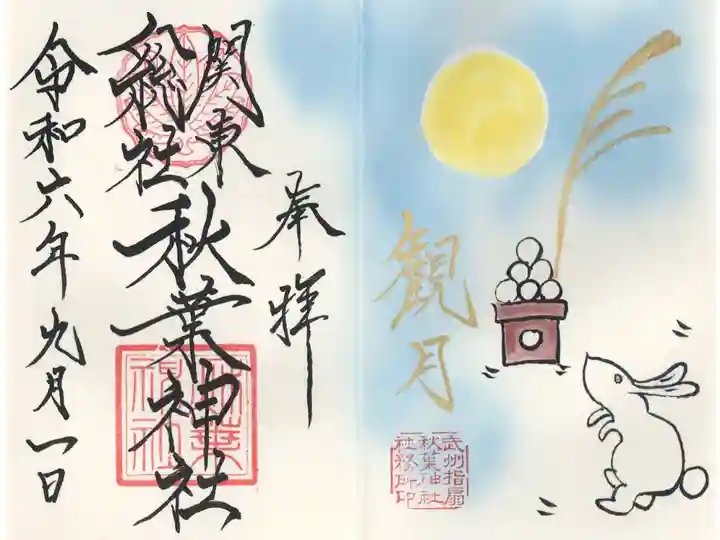 観月
武州指扇
秋葉神社
社務所印
奉拝
関東
総社
秋葉神社
秋葉
神社
令和六年九月一日